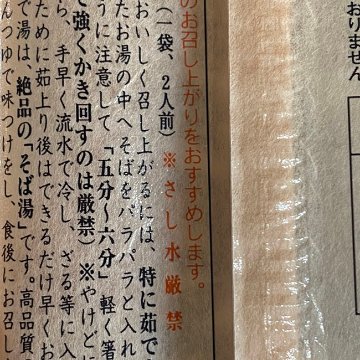 おりません
のお召し上がりをおすすめします。
（一袋、2人前）※さし水厳禁
おいしく召し上がるには、特に茹で
たお湯の中へそばをパラパラと入れ
うに注意して「五分～六分」軽く箸
で強くかき回すのは厳禁）※やけどに
ら、手早く流水で冷し、ざる等に入
ために茹上り後はできるだけ早くお
で湯は、絶品の「そば湯」です。高品質
んつゆで味つけをし、食後にお召し